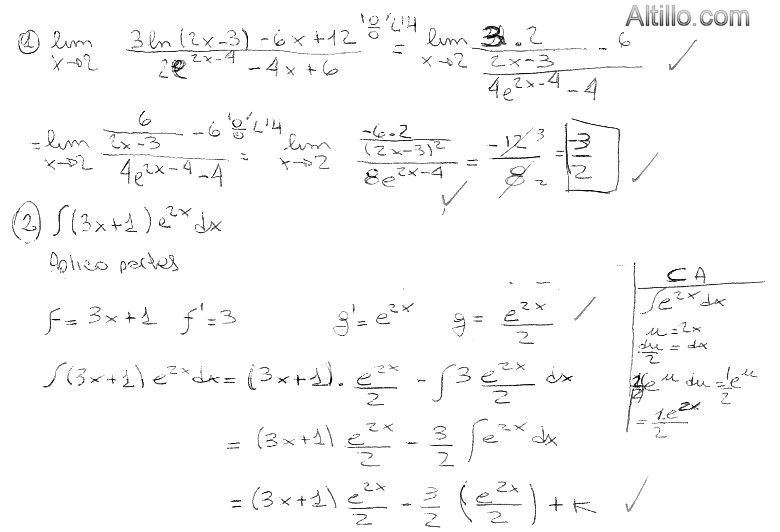 Altillo.com
① lim x→2 (3ln(2x-3) - 6x+12)/(2e^(2x-4) - 4x+6) "0/0" L'H = lim x→2 ((3·2)/(2x-3) - 6)/(4e^(2x-4) - 4) ✓
= lim x→2 (6/(2x-3) - 6)/(4e^(2x-4) - 4) "0/0" L'H = lim x→2 ((-6·2)/(2x-3)^2)/(8e^(2x-4)) = -12/8 3 2 = -3/2 ✓ ✓
② ∫(3x+1) e^(2x) dx
Aplico partes
f = 3x+1 f' = 3 g' = e^(2x) g = e^(2x)/2 ✓
∫(3x+1) e^(2x) dx = (3x+1) · e^(2x)/2 - ∫ 3 e^(2x)/2 dx
= (3x+1) e^(2x)/2 - 3/2 ∫ e^(2x) dx
= (3x+1) e^(2x)/2 - 3/2 (e^(2x)/2) + K ✓
CA
∫e^(2x) dx
u = 2x
du/2 = dx
1/2 ∫e^u du = 1/2 e^u
= 1/2 e^(2x)